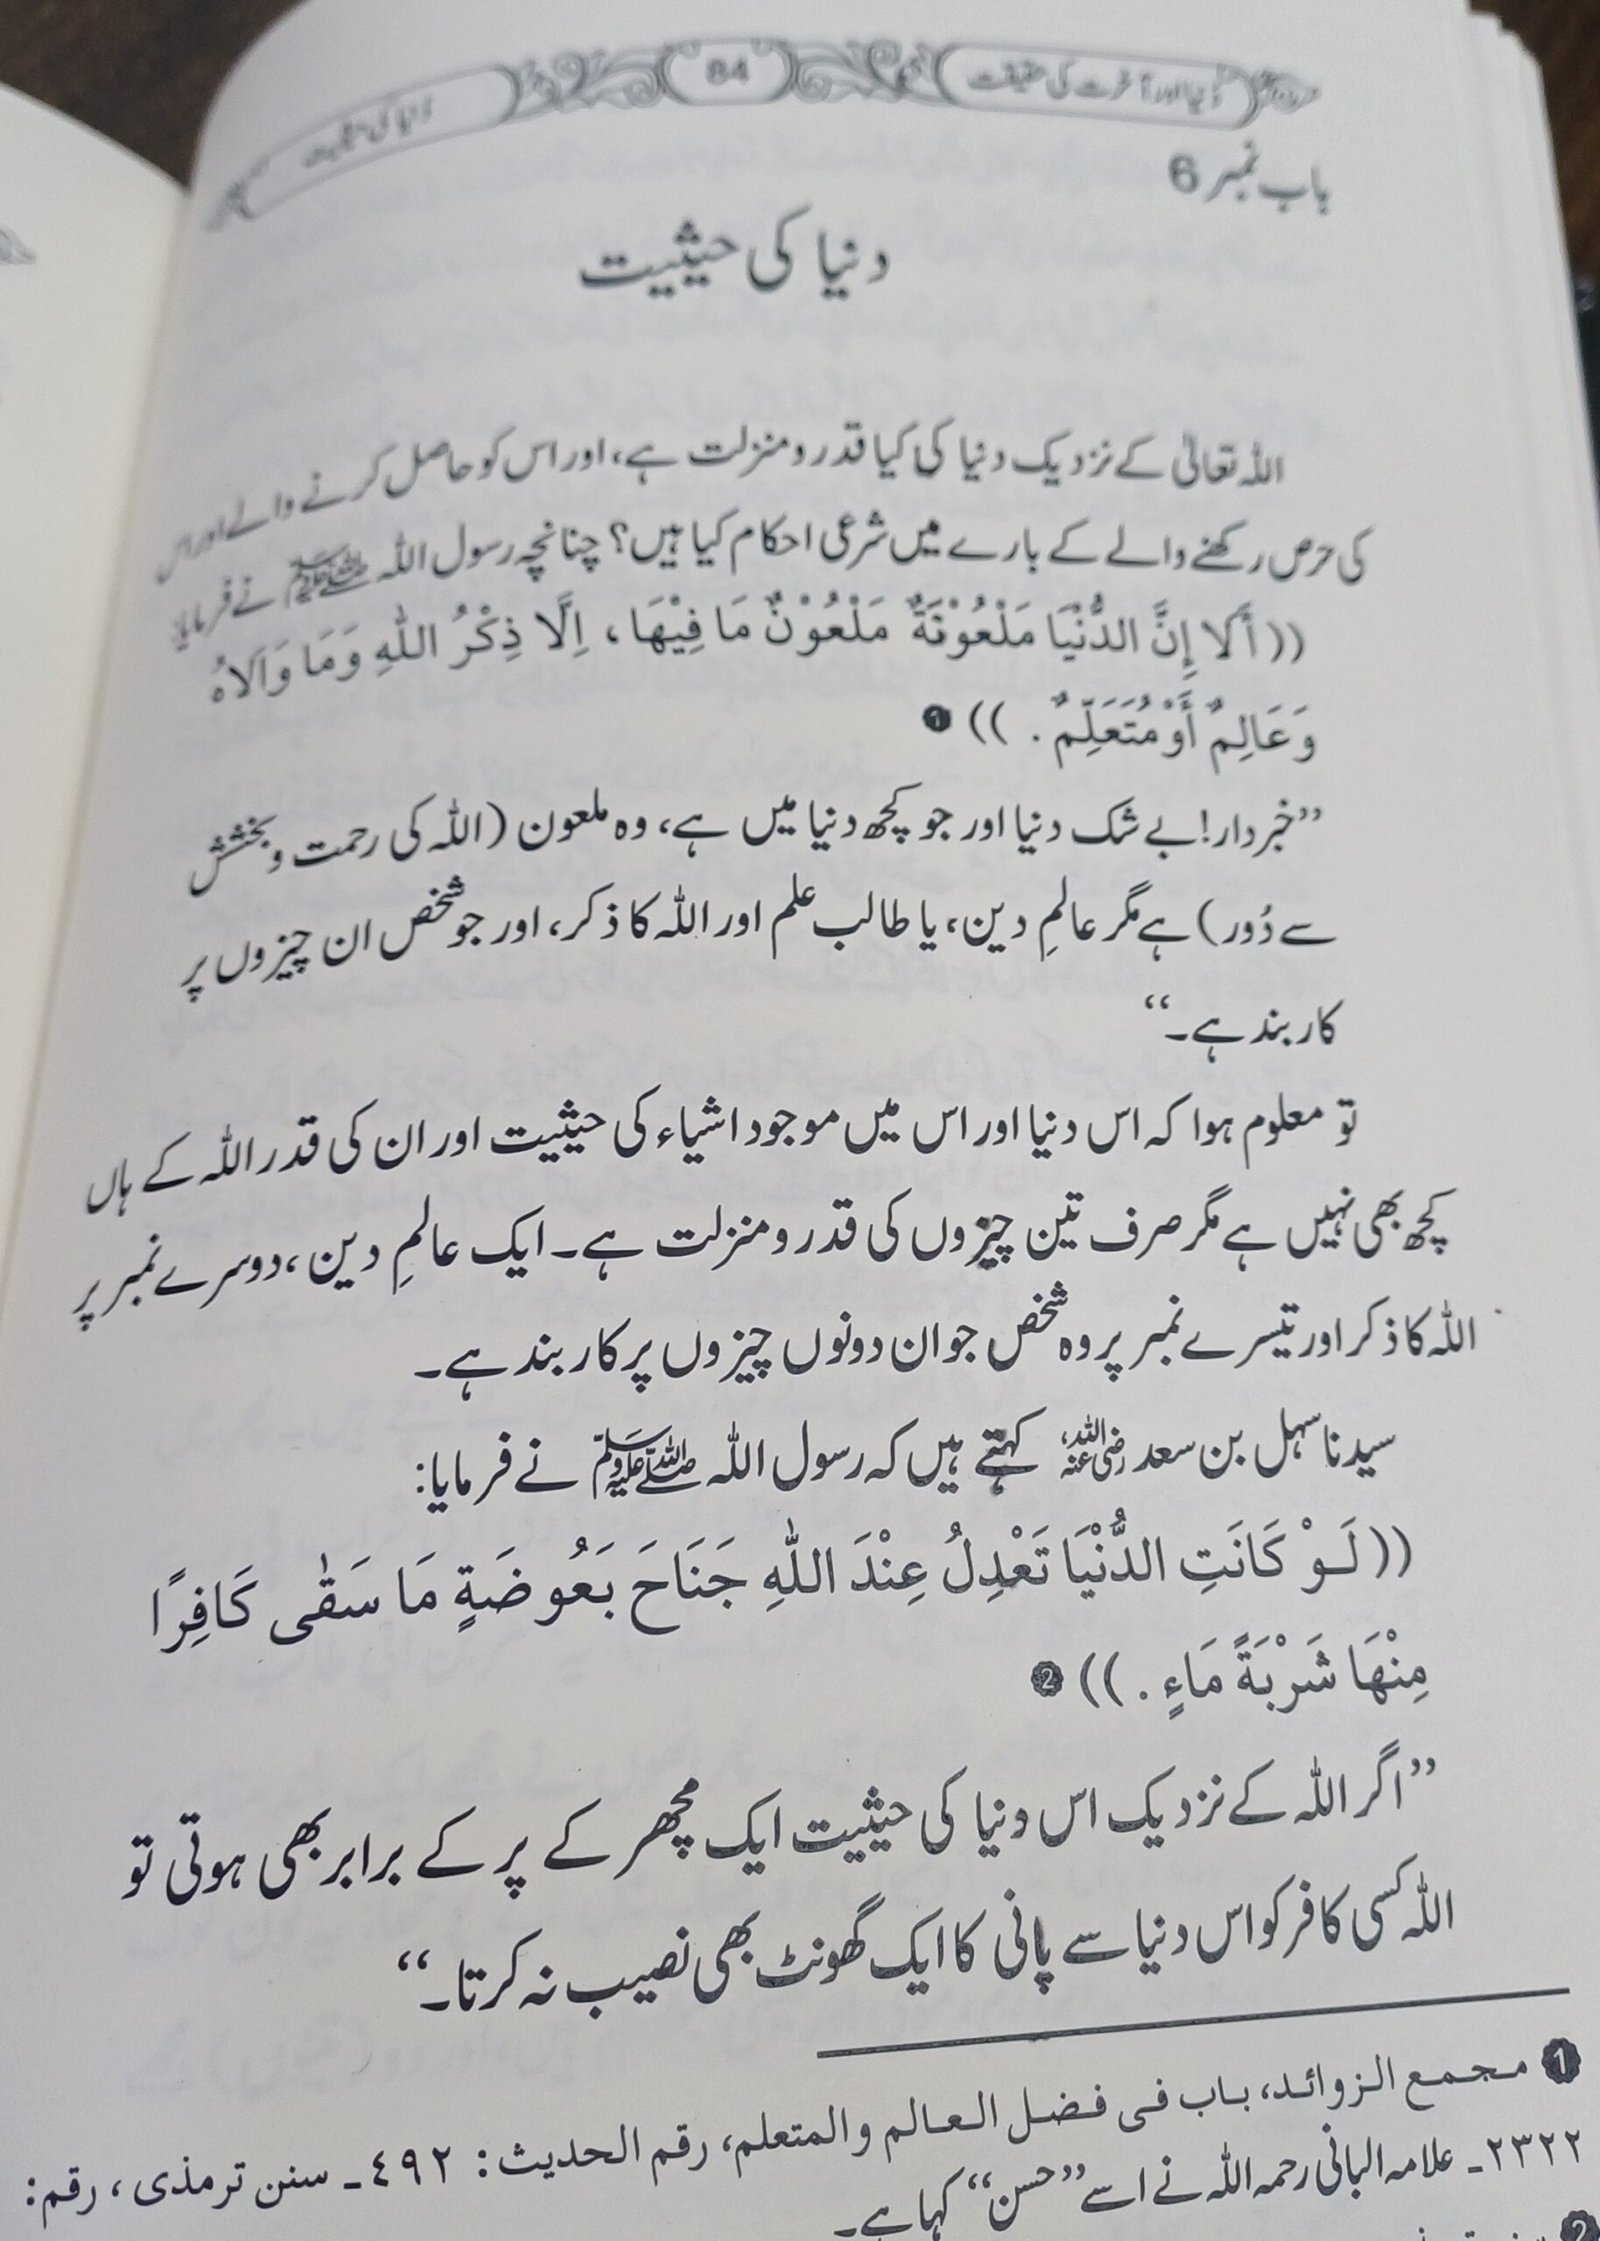 دنیا اور آخرت کی حقیقت 84 دنیا کی حیثیت
باب نمبر 6
دنیا کی حیثیت
اللہ تعالیٰ کے نزدیک دنیا کی کیا قدر و منزلت ہے، اور اس کو حاصل کرنے والے اور اس
کی حرص رکھنے والے کے بارے میں شرعی احکام کیا ہیں؟ چنانچہ رسول اللہ ﷺ نے فرمایا:
((أَلَا إِنَّ الدُّنْيَا مَلْعُوْنَةٌ مَلْعُوْنٌ مَا فِيْهَا، اِلَّا ذِكْرُ اللّٰهِ وَمَا وَالَاهُ
وَعَالِمٌ أَوْ مُتَعَلِّمٌ.)) ❶
”خبردار! بے شک دنیا اور جو کچھ دنیا میں ہے، وہ ملعون (اللہ کی رحمت و بخشش
سے دُور) ہے مگر عالمِ دین، یا طالب علم اور اللہ کا ذکر، اور جو شخص ان چیزوں پر
کاربند ہے۔“
تو معلوم ہوا کہ اس دنیا اور اس میں موجود اشیاء کی حیثیت اور ان کی قدر اللہ کے ہاں
کچھ بھی نہیں ہے مگر صرف تین چیزوں کی قدر و منزلت ہے۔ ایک عالمِ دین، دوسرے نمبر پر
اللہ کا ذکر اور تیسرے نمبر پر وہ شخص جو ان دونوں چیزوں پر کاربند ہے۔
سیدنا سہل بن سعد رضی اللہ عنہ کہتے ہیں کہ رسول اللہ ﷺ نے فرمایا:
((لَوْ كَانَتِ الدُّنْيَا تَعْدِلُ عِنْدَ اللّٰهِ جَنَاحَ بَعُوضَةٍ مَا سَقٰى كَافِرًا
مِنْهَا شَرْبَةَ مَاءٍ.)) ❷
”اگر اللہ کے نزدیک اس دنیا کی حیثیت ایک مچھر کے پر کے برابر بھی ہوتی تو
اللہ کسی کافر کو اس دنیا سے پانی کا ایک گھونٹ بھی نصیب نہ کرتا۔“
❶ مجمع الزوائد، باب فی فضل العالم والمتعلم، رقم الحدیث: ٤٩٢۔ سنن ترمذی، رقم:
٢٣٢٢۔ علامہ البانی رحمہ اللہ نے اسے ”حسن“ کہا ہے۔
❷